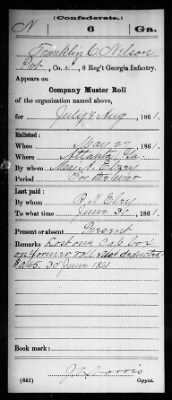 (Confederate.)
N 6 Ga.
Franklin C Nelson
Pvt, Co. , 6 Reg't Georgia Infantry.
Appears on
Company Muster Roll
of the organization named above,
for July & Aug, 1861.
Enlisted:
When May 27, 1861.
Where Atlanta, Ga.
By whom
Period For the war
Last paid:
By whom
To what time June 30, 1861.
Present or absent Present
Remarks Lost one Cap box
on former roll not deducted
30 June 1861
Book mark:
(642) Copyist.